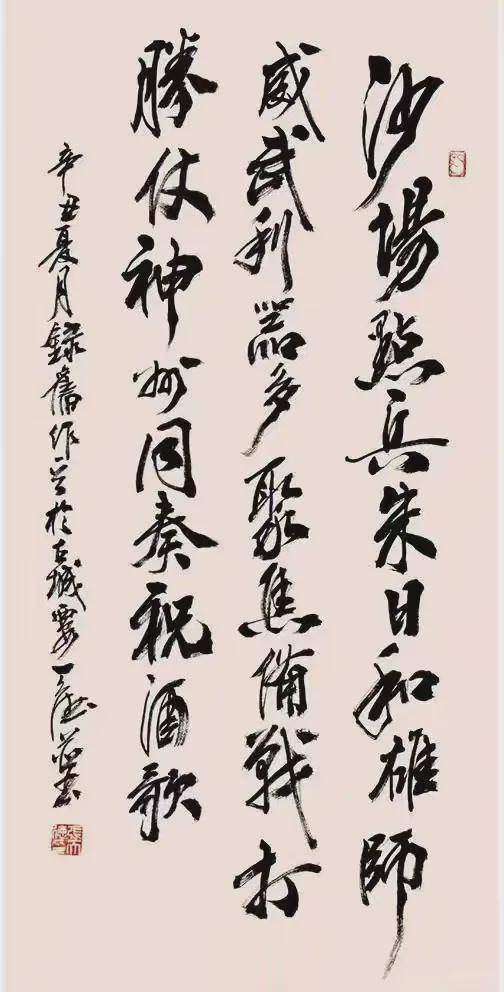 沙場點兵朱日和雄師
威武利器多聚焦備戰打
勝仗神州同奏祝酒歌
辛丑夏月錄舊作於古城